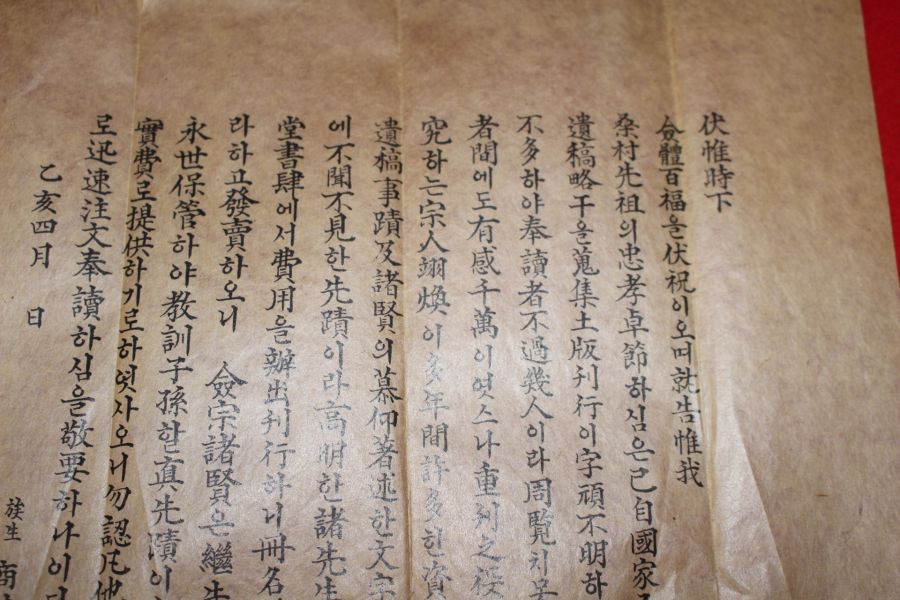 伏惟時下
僉體百福을伏祝이오며就告惟我
桑村先祖의忠孝卓節하심은已自國家
遺稿略干을蒐集土版刊行이字頑不明하
不多하야奉讀者不過幾人이라周覽치못
者間에도有感千萬이엿스나重刊之役
究하는宗人翊煥이多年間許多한資
遺稿事蹟及諸賢의慕仰著述한文字
에不聞不見한先蹟이라高明한諸先生
堂書肆에서費用을辦出刊行하니冊名
라하고發賣하오니 僉宗諸賢은繼
永世保管하야敎訓子孫할眞先蹟이
實費로提供하기로하엿사오니勿認凡他
로迅速注文奉讀하심을敬要하나이다
乙亥四月 日
族生 商